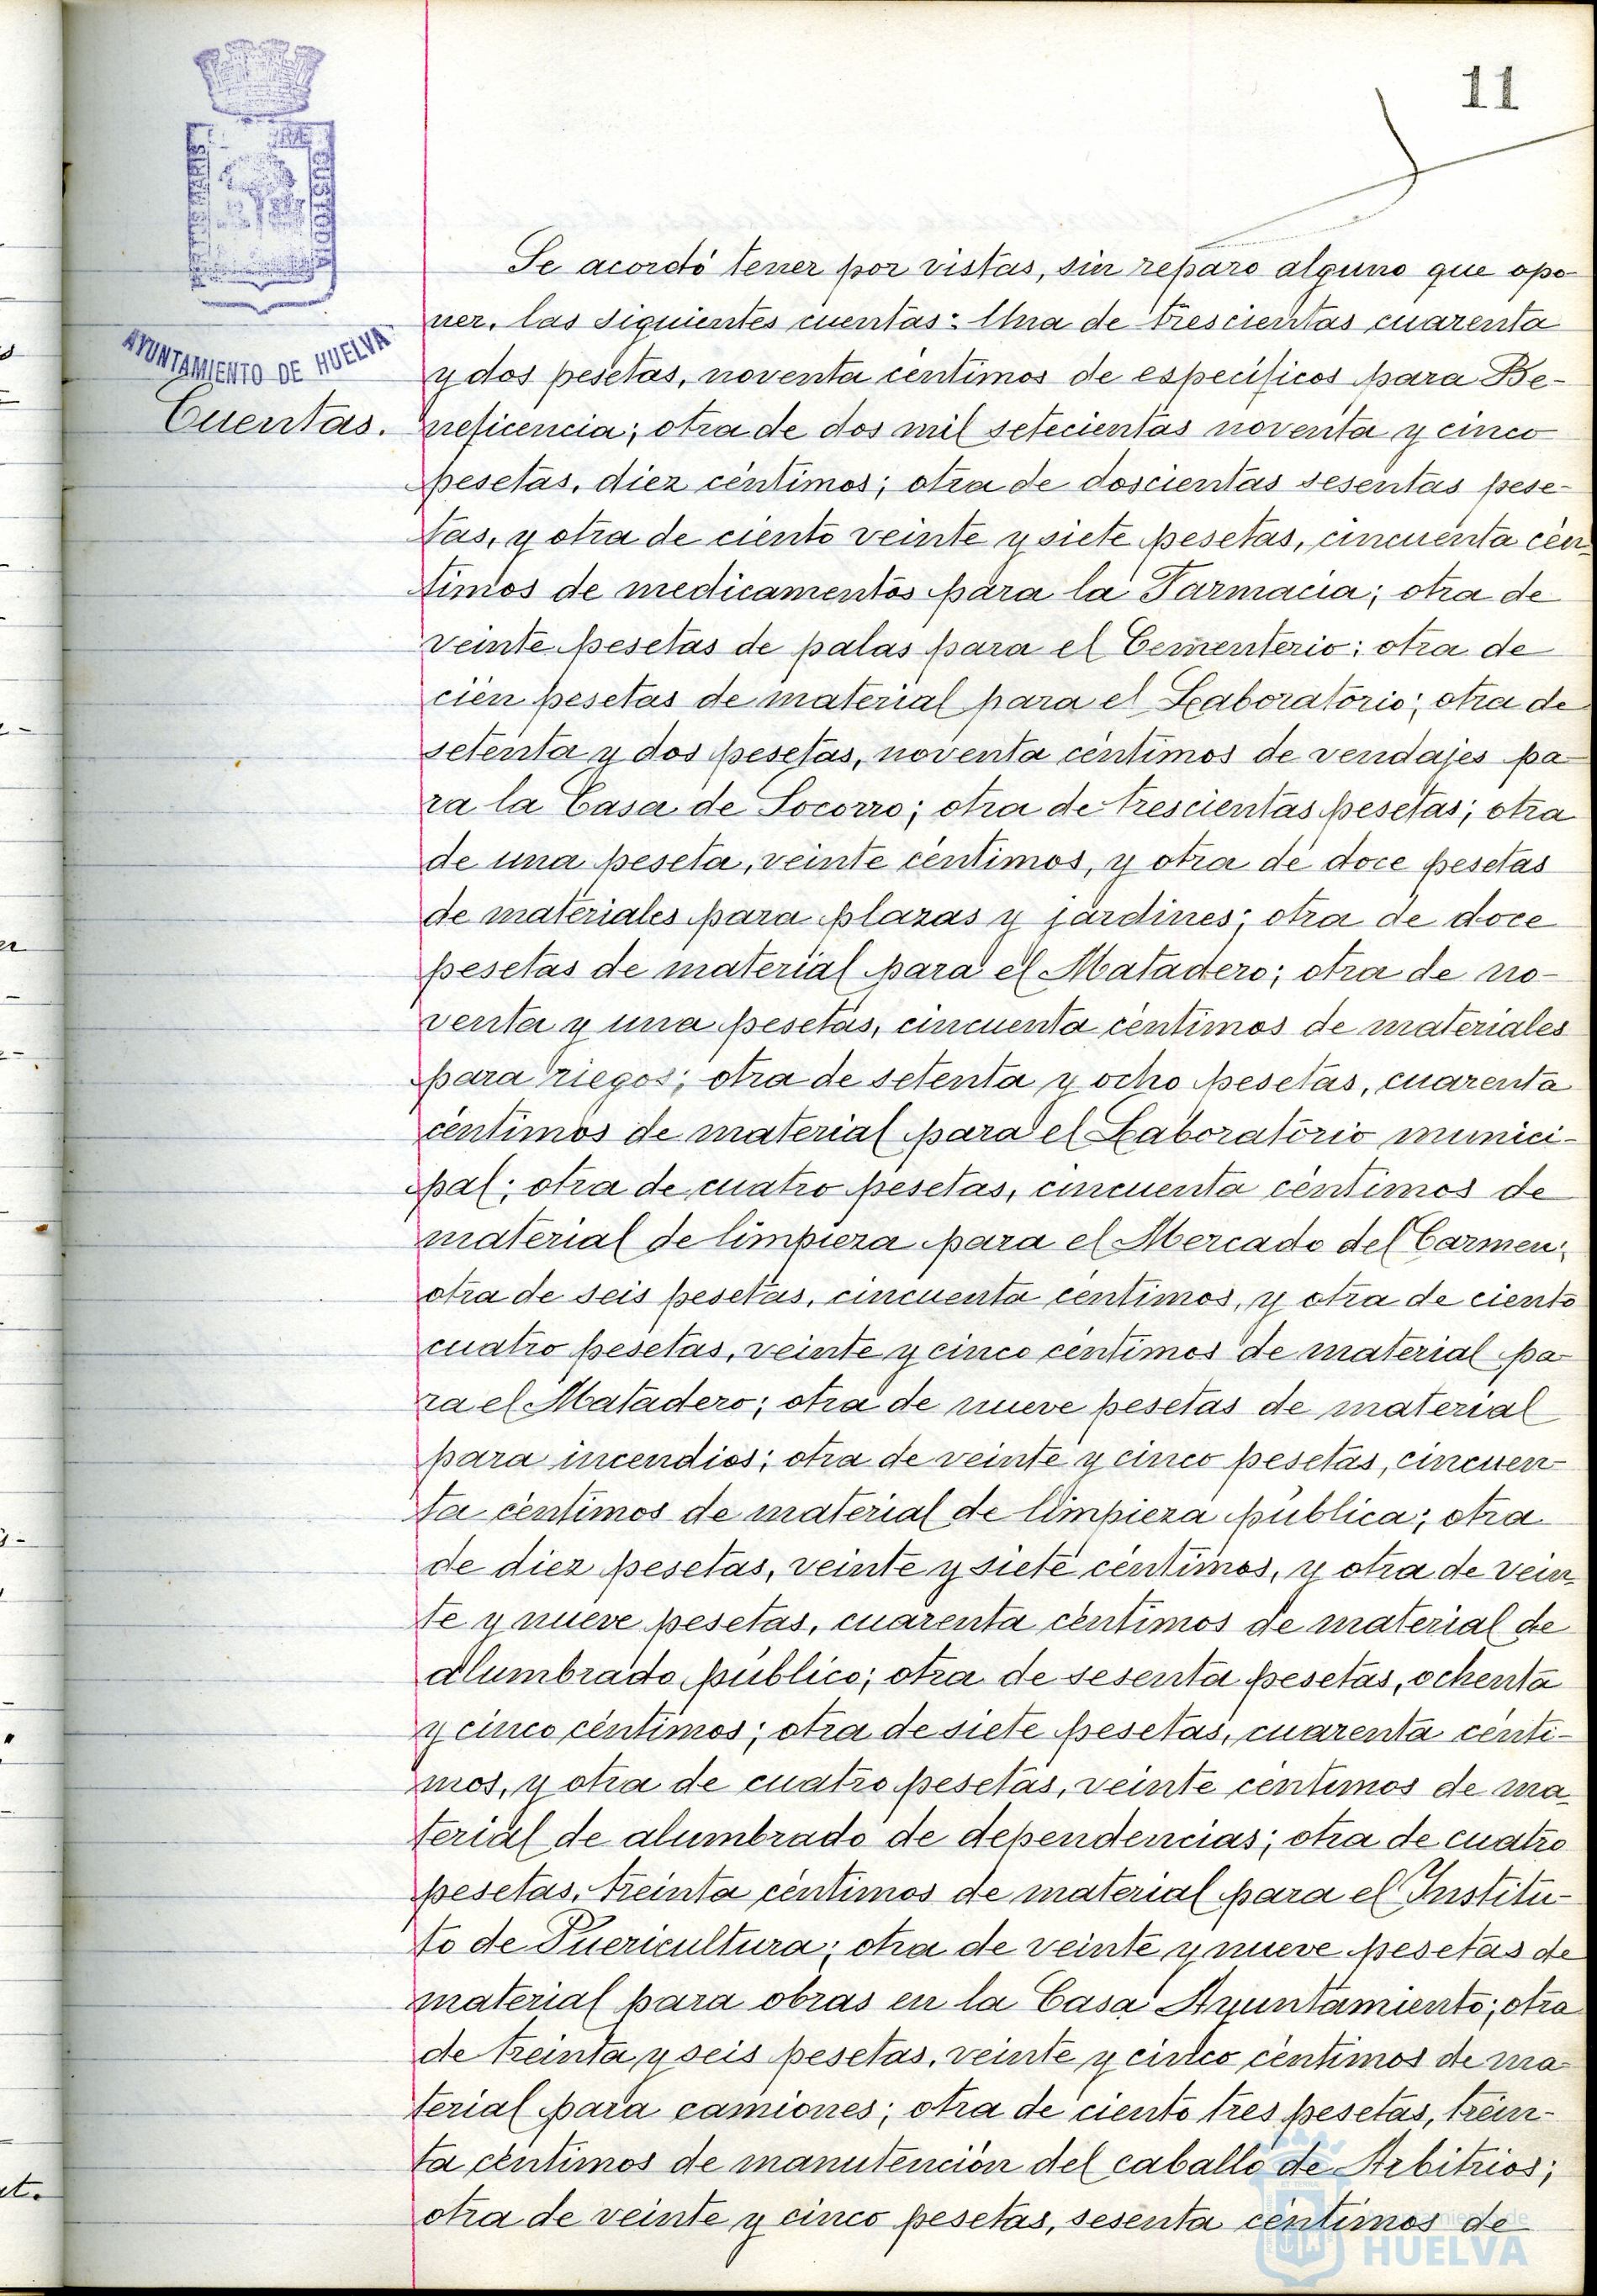 11
PORTUS MARIS
CUSTODIA
AYUNTAMIENTO DE HUELVA
Cuentas.
Se acordó tener por vistas, sin reparo alguno que opo-
ner, las siguientes cuentas: Una de trescientas cuarenta
y dos pesetas, noventa céntimos de específicos para Be-
neficencia; otra de dos mil setecientas noventa y cinco
pesetas, diez céntimos; otra de doscientas sesentas pese-
tas, y otra de ciento veinte y siete pesetas, cincuenta cén-
timos de medicamentos para la Farmacia; otra de
veinte pesetas de palas para el Cementerio; otra de
cien pesetas de material para el Laboratorio; otra de
setenta y dos pesetas, noventa céntimos de vendajes pa-
ra la Casa de Socorro; otra de trescientas pesetas; otra
de una peseta, veinte céntimos, y otra de doce pesetas
de materiales para plazas y jardines; otra de doce
pesetas de material para el Matadero; otra de no-
venta y una pesetas, cincuenta céntimos de materiales
para riegos; otra de setenta y ocho pesetas, cuarenta
céntimos de material para el Laboratorio munici-
pal; otra de cuatro pesetas, cincuenta céntimos de
material de limpieza para el Mercado del Carmen;
otra de seis pesetas, cincuenta centimos, y otra de ciento
cuatro pesetas, veinte y cinco céntimos de material pa-
ra el Matadero; otra de nueve pesetas de material
para incendios; otra de veinte y cinco pesetas, cincuen-
ta céntimos de material de limpieza pública; otra
de diez pesetas, veinte y siete céntimos, y otra de vein-
te y nueve pesetas, cuarenta céntimos de material de
alumbrado público; otra de sesenta pesetas, ochenta
y cinco céntimos; otra de siete pesetas, cuarenta cénti-
mos, y otra de cuatro pesetas, veinte céntimos de ma-
terial de alumbrado de dependencias; otra de cuatro
pesetas, treinta céntimos de material para el Institu-
to de Puericultura; otra de veinte y nueve pesetas de
material para obras en la Casa Ayuntamiento; otra
de treinta y seis pesetas, veinte y cinco céntimos de ma-
terial para camiones; otra de ciento tres pesetas, trein-
ta céntimos de manutención del caballo de Arbitrios;
otra de veinte y cinco pesetas, sesenta céntimos de
HUELVA